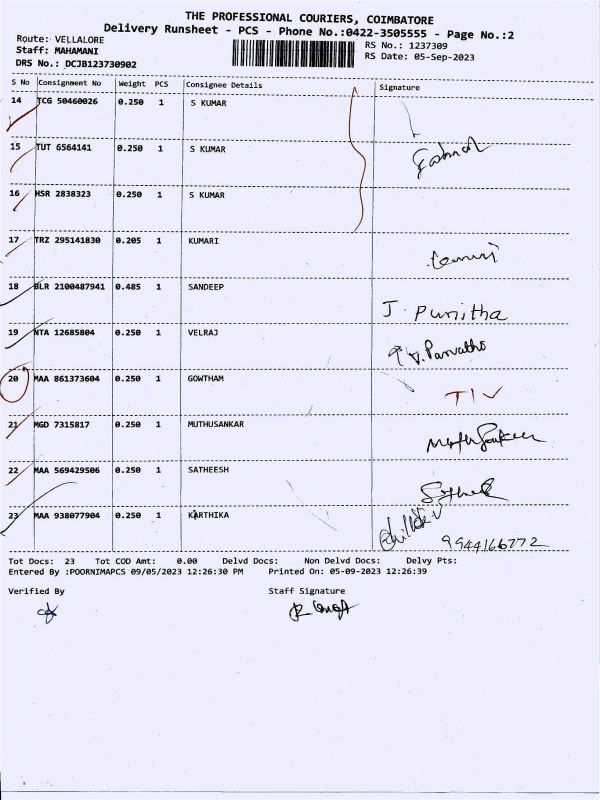 THE PROFESSIONAL COURIERS, COIMBATORE
Delivery Runsheet - PCS - Phone No.:0422-3505555 - Page No.:2
Route: VELLALORE
RS No.: 1237309
Staff: MAHAMANI
RS Date: 05-Sep-2023
DRS No.: DCJB123730902
S No Consignment No Weight PCS Consignee Details Signature
14 TCG 50460026 0.250 1 S KUMAR
15 TUT 6564141 0.250 1 S KUMAR
16 HSR 2838323 0.250 1 S KUMAR
17 TRZ 295141830 0.205 1 KUMARI
18 BLR 2100487941 0.485 1 SANDEEP J Punitha
19 NTA 12685804 0.250 1 VELRAJ V. Parvatho
20 MAA 861373604 0.250 1 GOWTHAM TIV
21 MGD 7315817 0.250 1 MUTHUSANKAR
22 MAA 569429506 0.250 1 SATHEESH
23 MAA 938077904 0.250 1 KARTHIKA 9944166772
Tot Docs: 23 Tot COD Amt: 0.00 Delvd Docs: Non Delvd Docs: Delvy Pts:
Entered By :POORNIMAPCS 09/05/2023 12:26:30 PM Printed On: 05-09-2023 12:26:39
Verified By Staff Signature